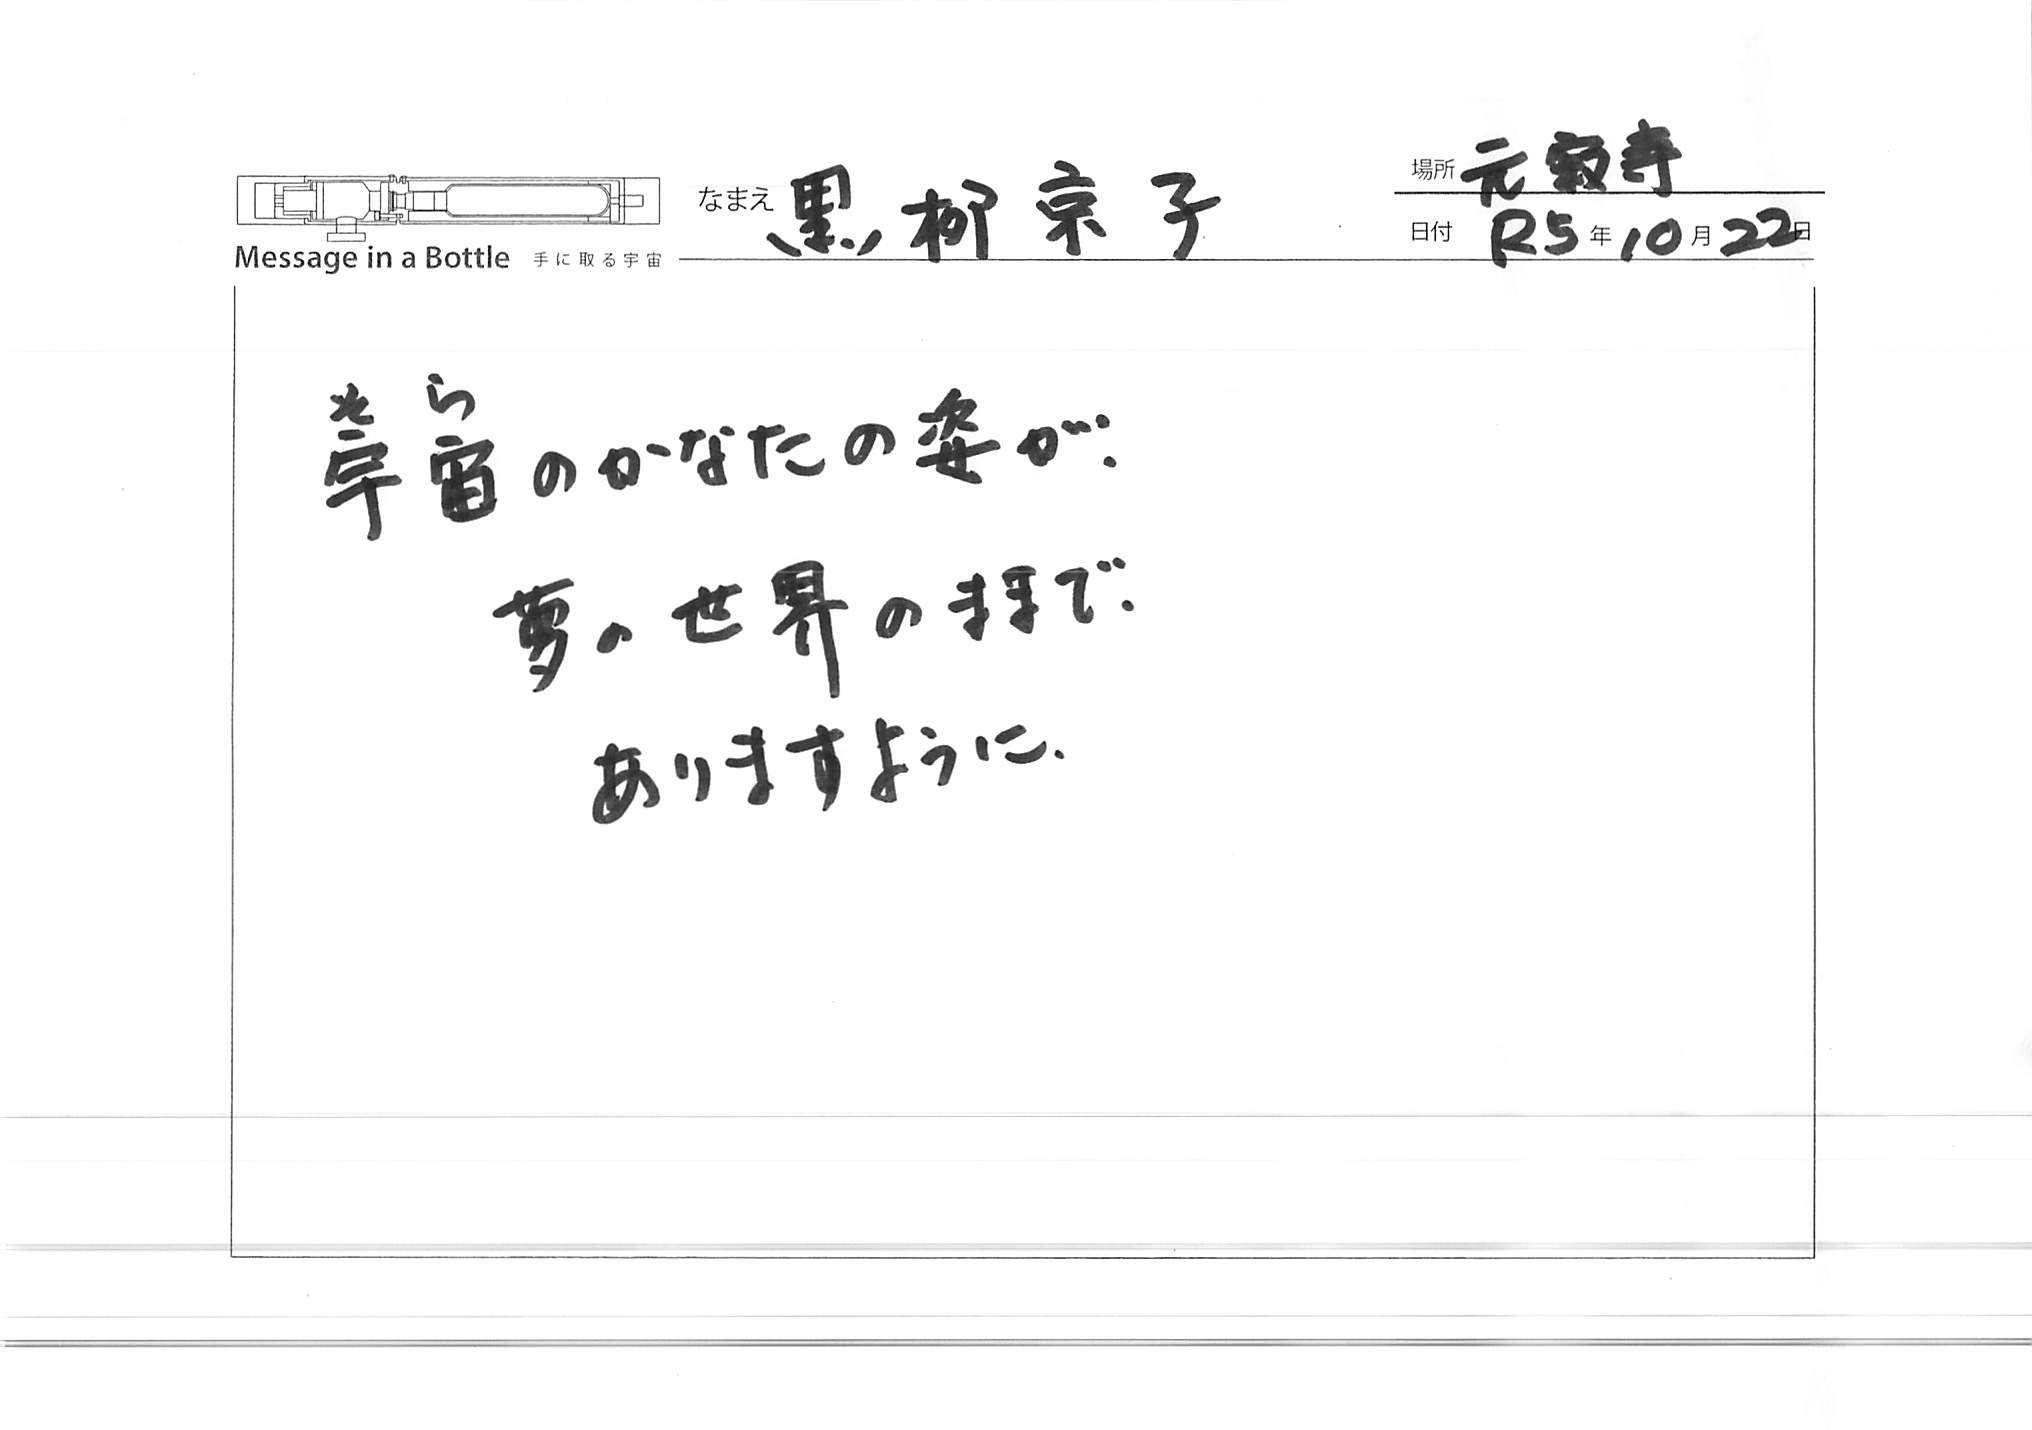 Message in a Bottle 手に取る宇宙
なまえ 黒柳京子
場所 元興寺
日付 R5年10月22日
そら
宇宙のかなたの姿が.
夢の世界のままで.
ありますように.